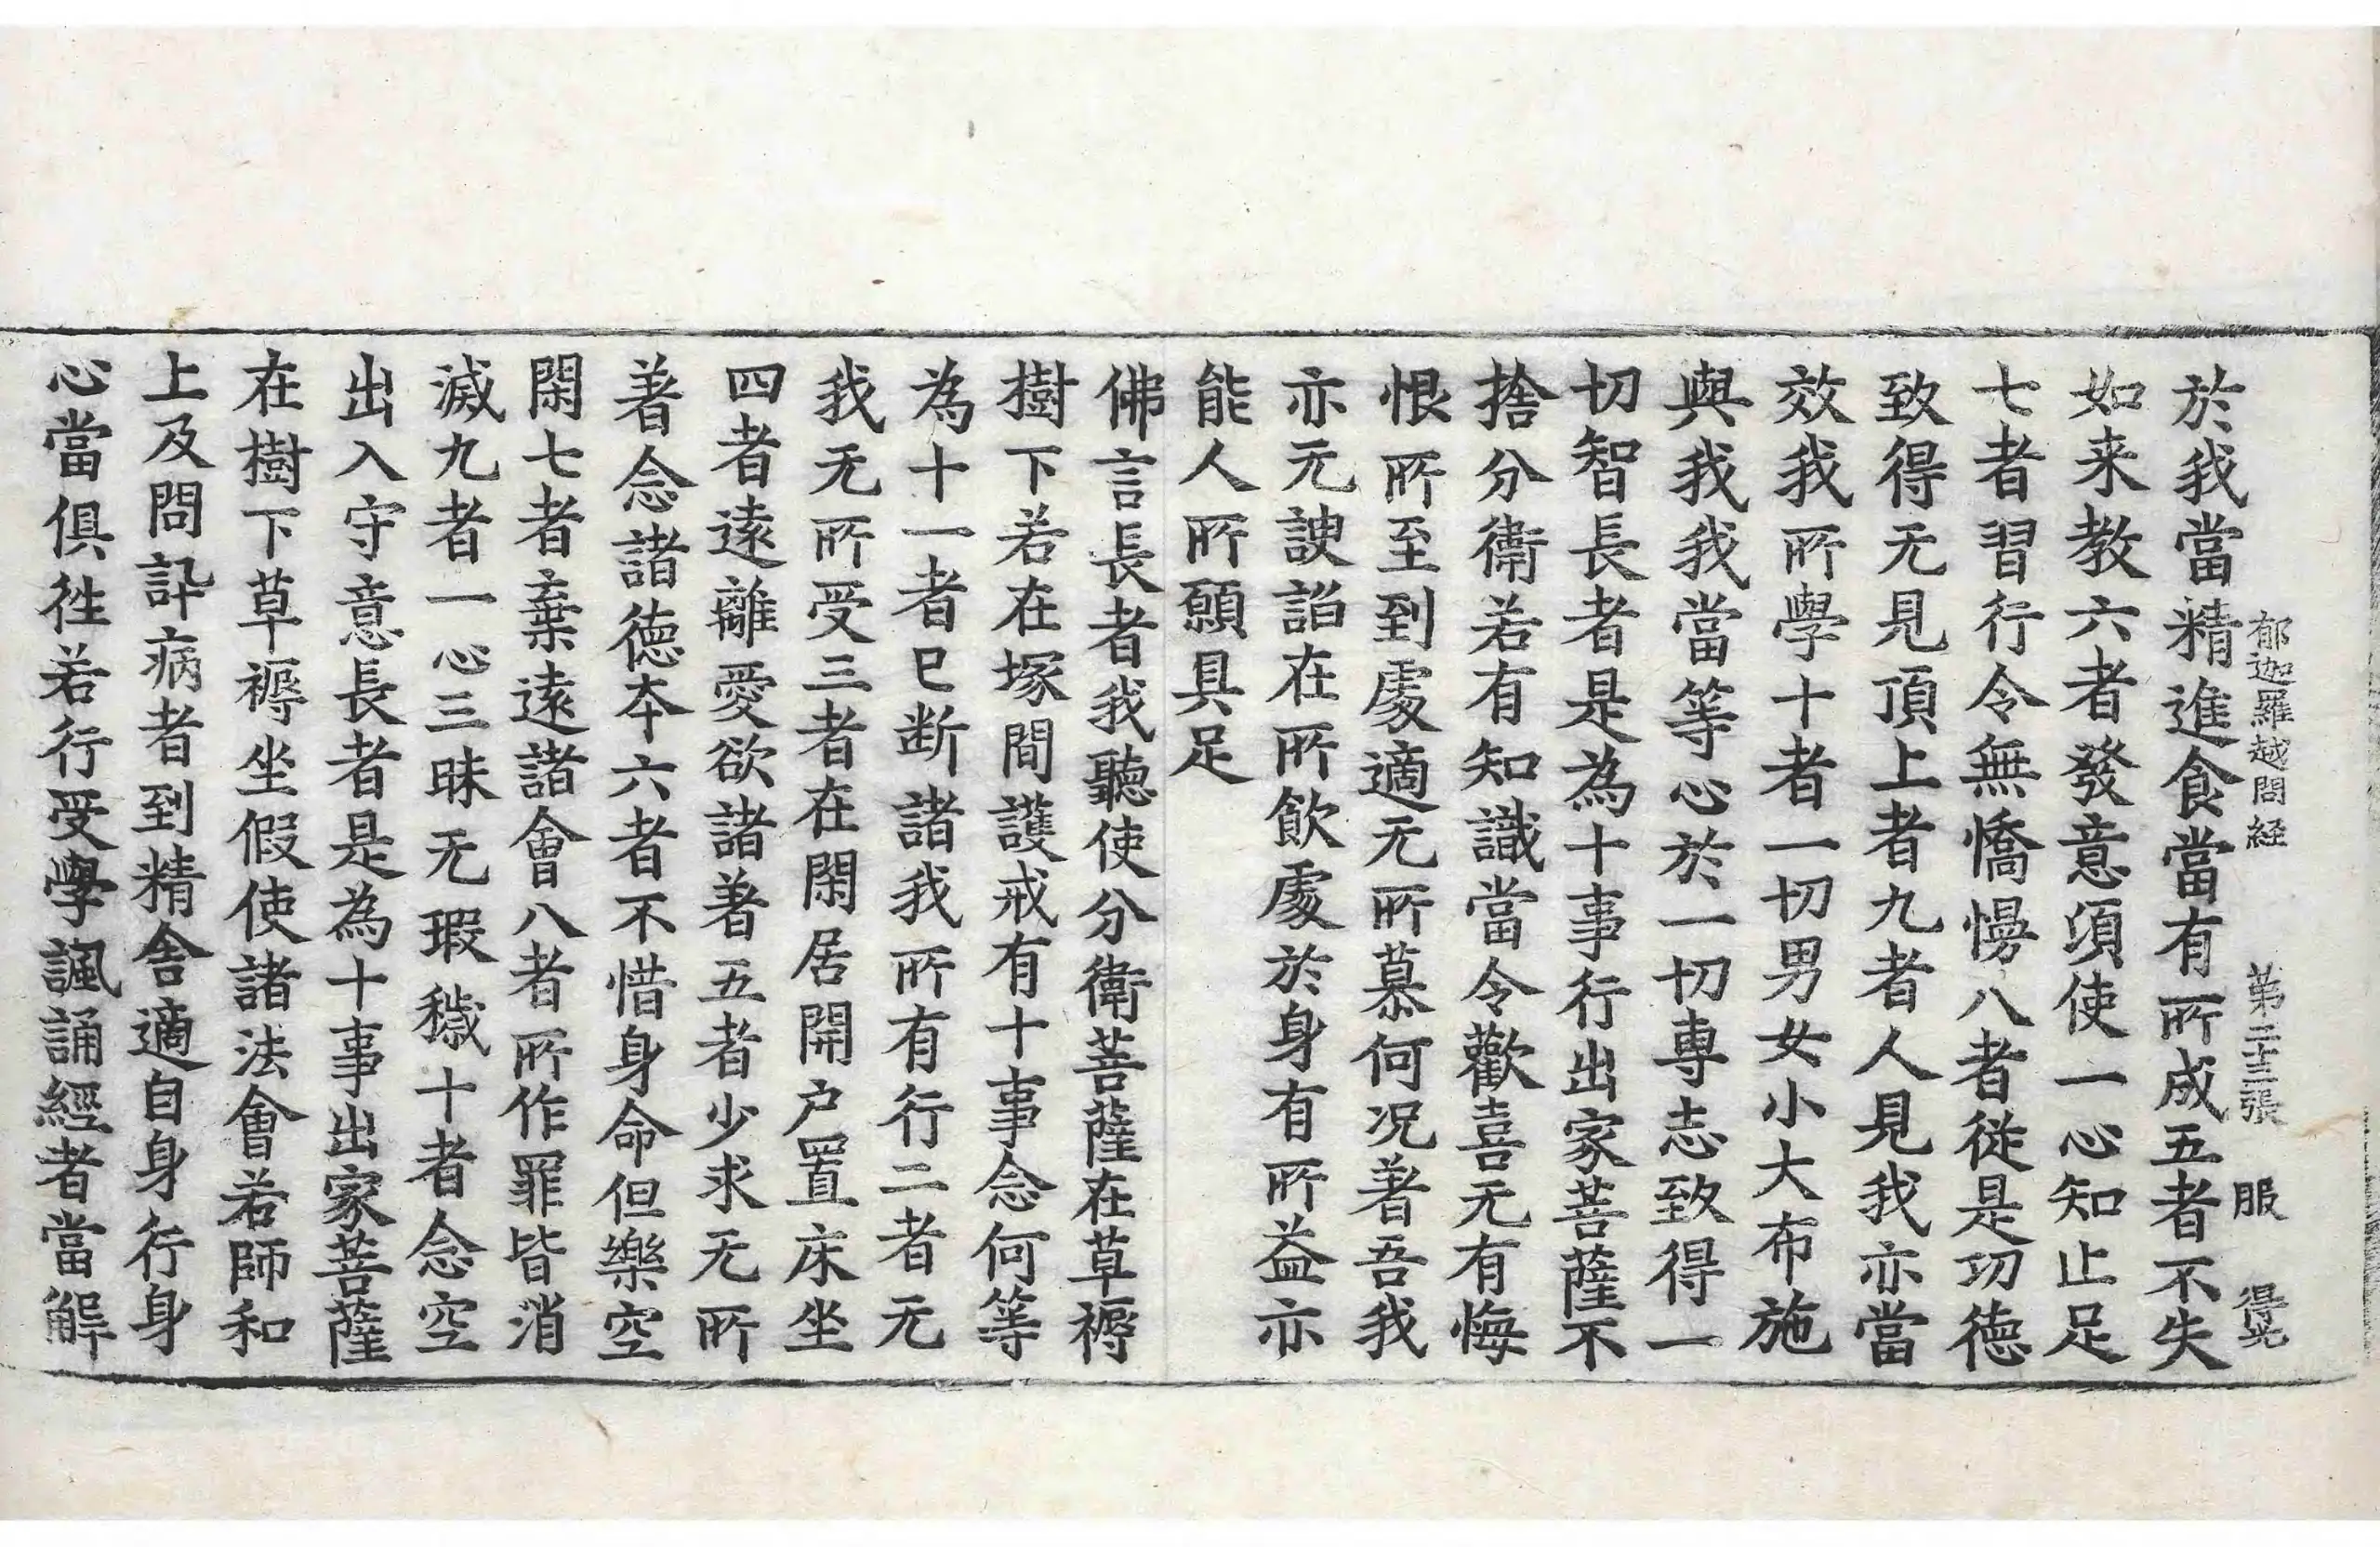 郁迦羅越問経　第二十三張　服　得光
於我當精進食當有所成五者不失
如来教六者發意須使一心知止足
七者習行令無憍慢八者従是功徳
致得无見頂上者九者人見我亦當
效我所學十者一切男女小大布施
與我我當等心於一切專志致得一
切智長者是為十事行出家菩薩不
捨分衛若有知識當令歡喜无有悔
恨所至到處適无所慕何況著吾我
亦无諛諂在所飲處於身有所益亦
能人所願具足
佛言長者我聽使分衛菩薩在草褥
樹下若在塚間護戒有十事念何等
為十一者已断諸我所有行二者无
我无所受三者在閑居開户置床坐
四者遠離愛欲諸著五者少求无所
著念諸徳夲六者不惜身命但樂空
閑七者棄遠諸會八者所作罪皆消
滅九者一心三昧无瑕穢十者念空
出入守意長者是為十事出家菩薩
在樹下草褥坐假使諸法會若師和
上及問訊病者到精舍適自身行身
心當俱徃若行受學諷誦經者當解